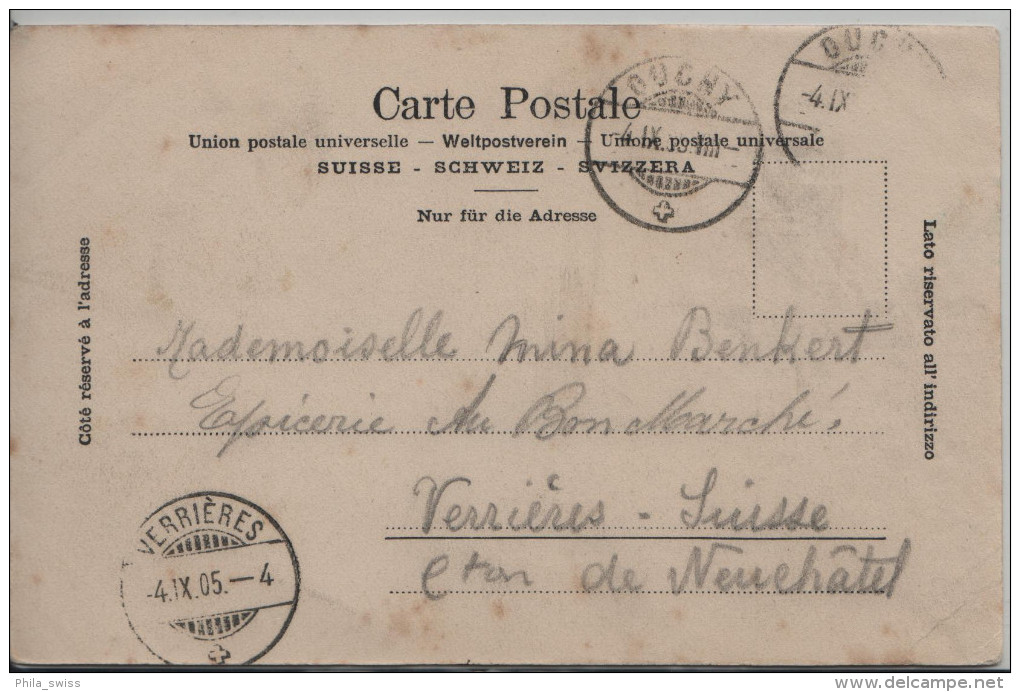 OUCHY
-4.IX
OUCHY
-4.IX.05.VIII-
Carte Postale
Union postale universelle — Weltpostverein — Unione postale universale
SUISSE - SCHWEIZ - SVIZZERA
Nur für die Adresse
Côté réservé à l'adresse
Lato riservato all' indirizzo
Mademoiselle Mina Benkert
Epicerie Au Bon Marché.
Verrières - Suisse
Cton de Neuchâtel
VERRIÈRES
-4.IX.05.-4
Phila_swiss
www.delcampe.net